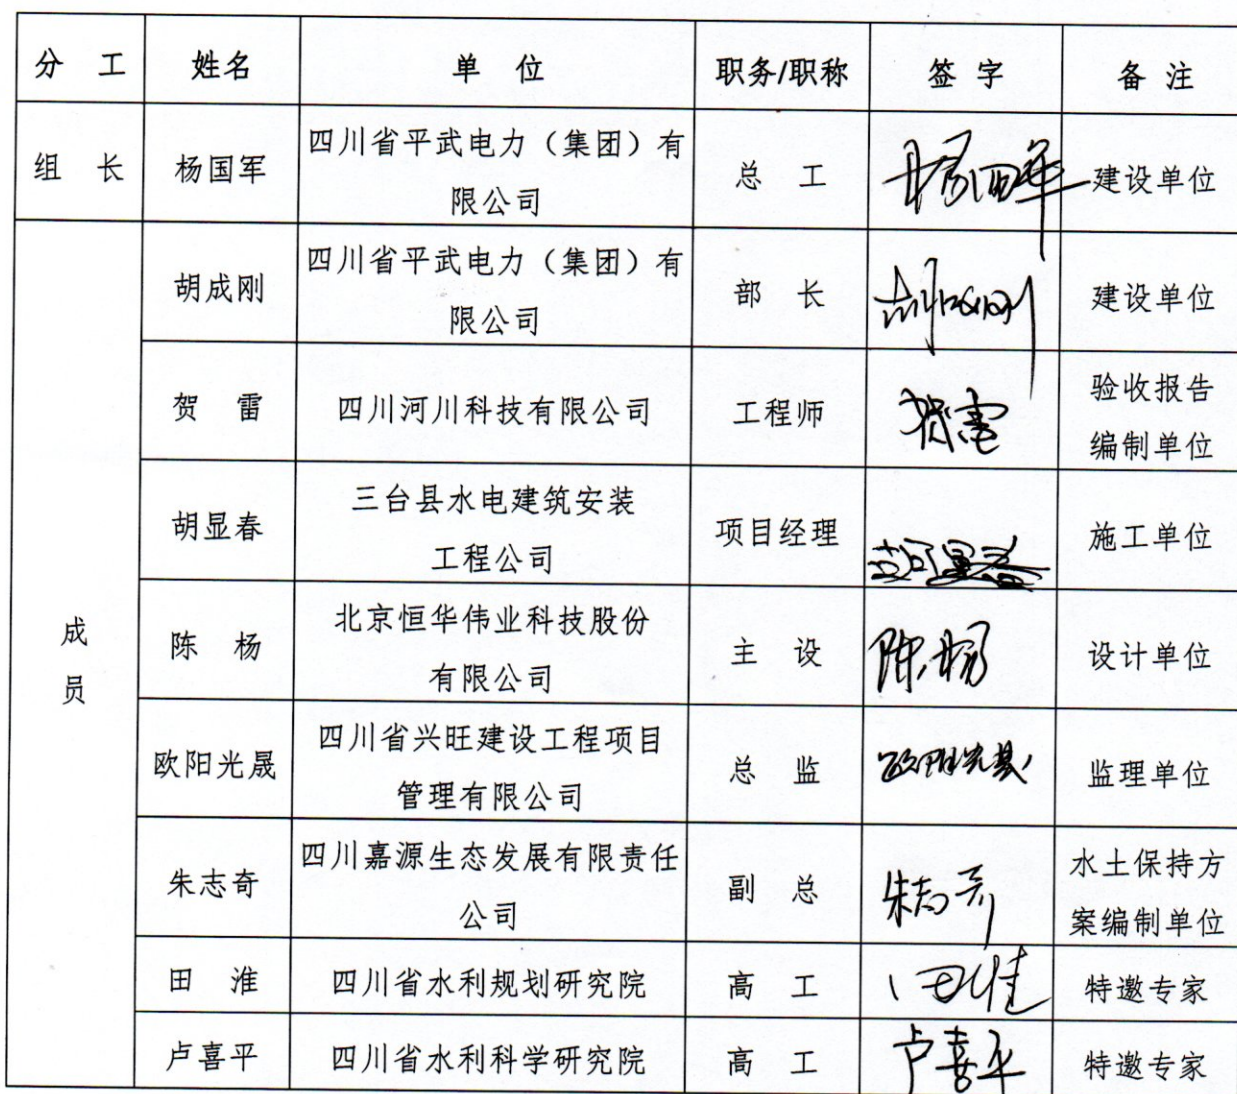 分 工 姓名 单 位 职务/职称 签 字 备 注
组 长 杨国军 四川省平武电力（集团）有
限公司 总 工 杨国军 建设单位
成
员
胡成刚 四川省平武电力（集团）有
限公司 部 长 胡成刚 建设单位
贺 雷 四川河川科技有限公司 工程师 贺雷 验收报告
编制单位
胡显春 三台县水电建筑安装
工程公司 项目经理 胡显春 施工单位
陈 杨 北京恒华伟业科技股份
有限公司 主 设 陈杨 设计单位
欧阳光晟 四川省兴旺建设工程项目
管理有限公司 总 监 欧阳光晟 监理单位
朱志奇 四川嘉源生态发展有限责任
公司 副 总 朱志奇 水土保持方
案编制单位
田 淮 四川省水利规划研究院 高 工 特邀专家
卢喜平 四川省水利科学研究院 高 工 卢喜平 特邀专家